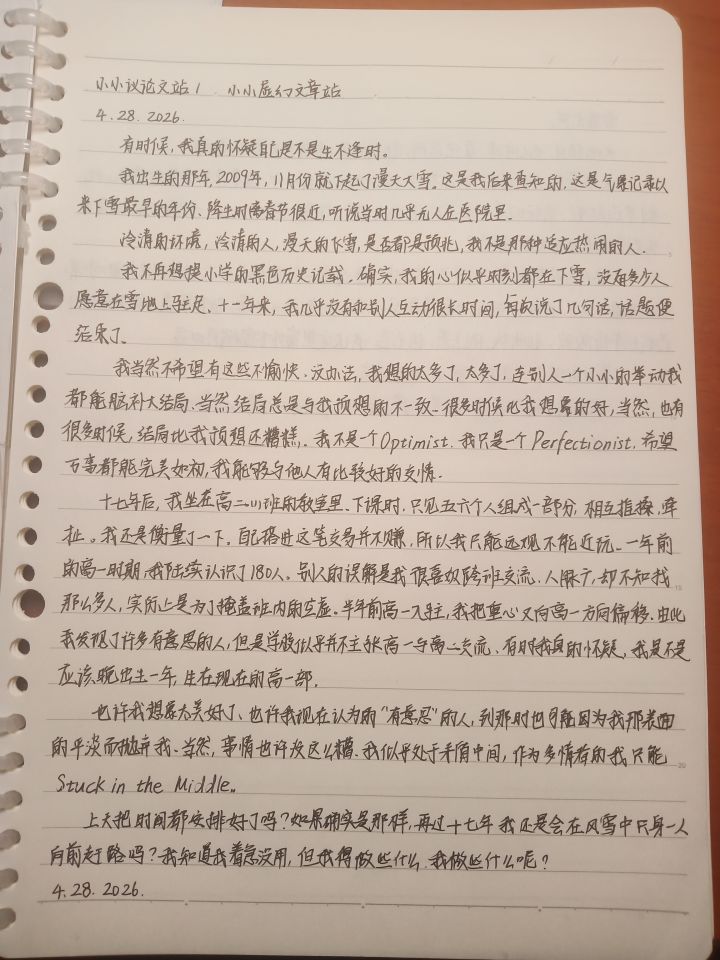 小小议论文站1 小小虚幻文章站
4.28.2026.
有时候,我真的怀疑自己是不是生不逢时。
我出生的那年,2009年,11月份就下起了漫天大雪,这是我后来查知的,这是气象记录以
来下雪最早的年份、降生时离春节很近,听说当时几乎无人在医院里.
冷清的环境,冷清的人,漫天的飞雪,是否都是预兆,我不是那种适应热闹的人.
我不再想提小学的黑色历史记载,确实,我的心似乎时刻都在下雪,没有多少人
愿意在雪地上驻足、十一年来,我几乎没有和别人互动很长时间,每次说了几句话,话题便
结束了.
我当然不希望有这些不愉快.没办法,我想的太多了,太多了,连别人一个小小的举动我
都能脑补大结局.当然结局总是与我预想的不一致、很多时候比我想象的好,当然,也有
很多时候,结局比我预想还糟糕,.我不是一个Optimist.我只是一个Perfectionist,希望
万事都能完美如初,我能够与他人有比较好的交情.
十七年后,我坐在高二(1)班的教室里.下课时,只见五六个人组成一部分,相互推搡,牵
扯。我还是衡量了一下,自己搭进这笔交易并不赚,所以我只能远观不能近玩、一年前
的高一时期,我陆续认识了180人。别人的误解是我很喜欢跨班交流.人脉广,却不知我
那么多人,实际上是为了掩盖班内的空虚.半年前高一入驻,我把重心又向高一方向偏移.由此
我发现了许多有意思的人,但是学校似乎并不主张高一与高二交流.有时我真的怀疑,我是不是
应该晚出生一年,生在现在的高一部.
也许我想象太美好了、也许我现在认为的“有意思”的人,到那时也可能因为我那表面
的平淡而抛弃我.当然,事情也许没这么糟.我似乎处于矛盾中间,作为多情者的我只能
Stuck in the Middle。
上天把时间都安排好了吗?如果确实是那样,再过十七年我还是会在风雪中只身一人
向前赶路吗?我知道我着急没用,但我得做些什么.我做些什么呢?
4.28.2026.